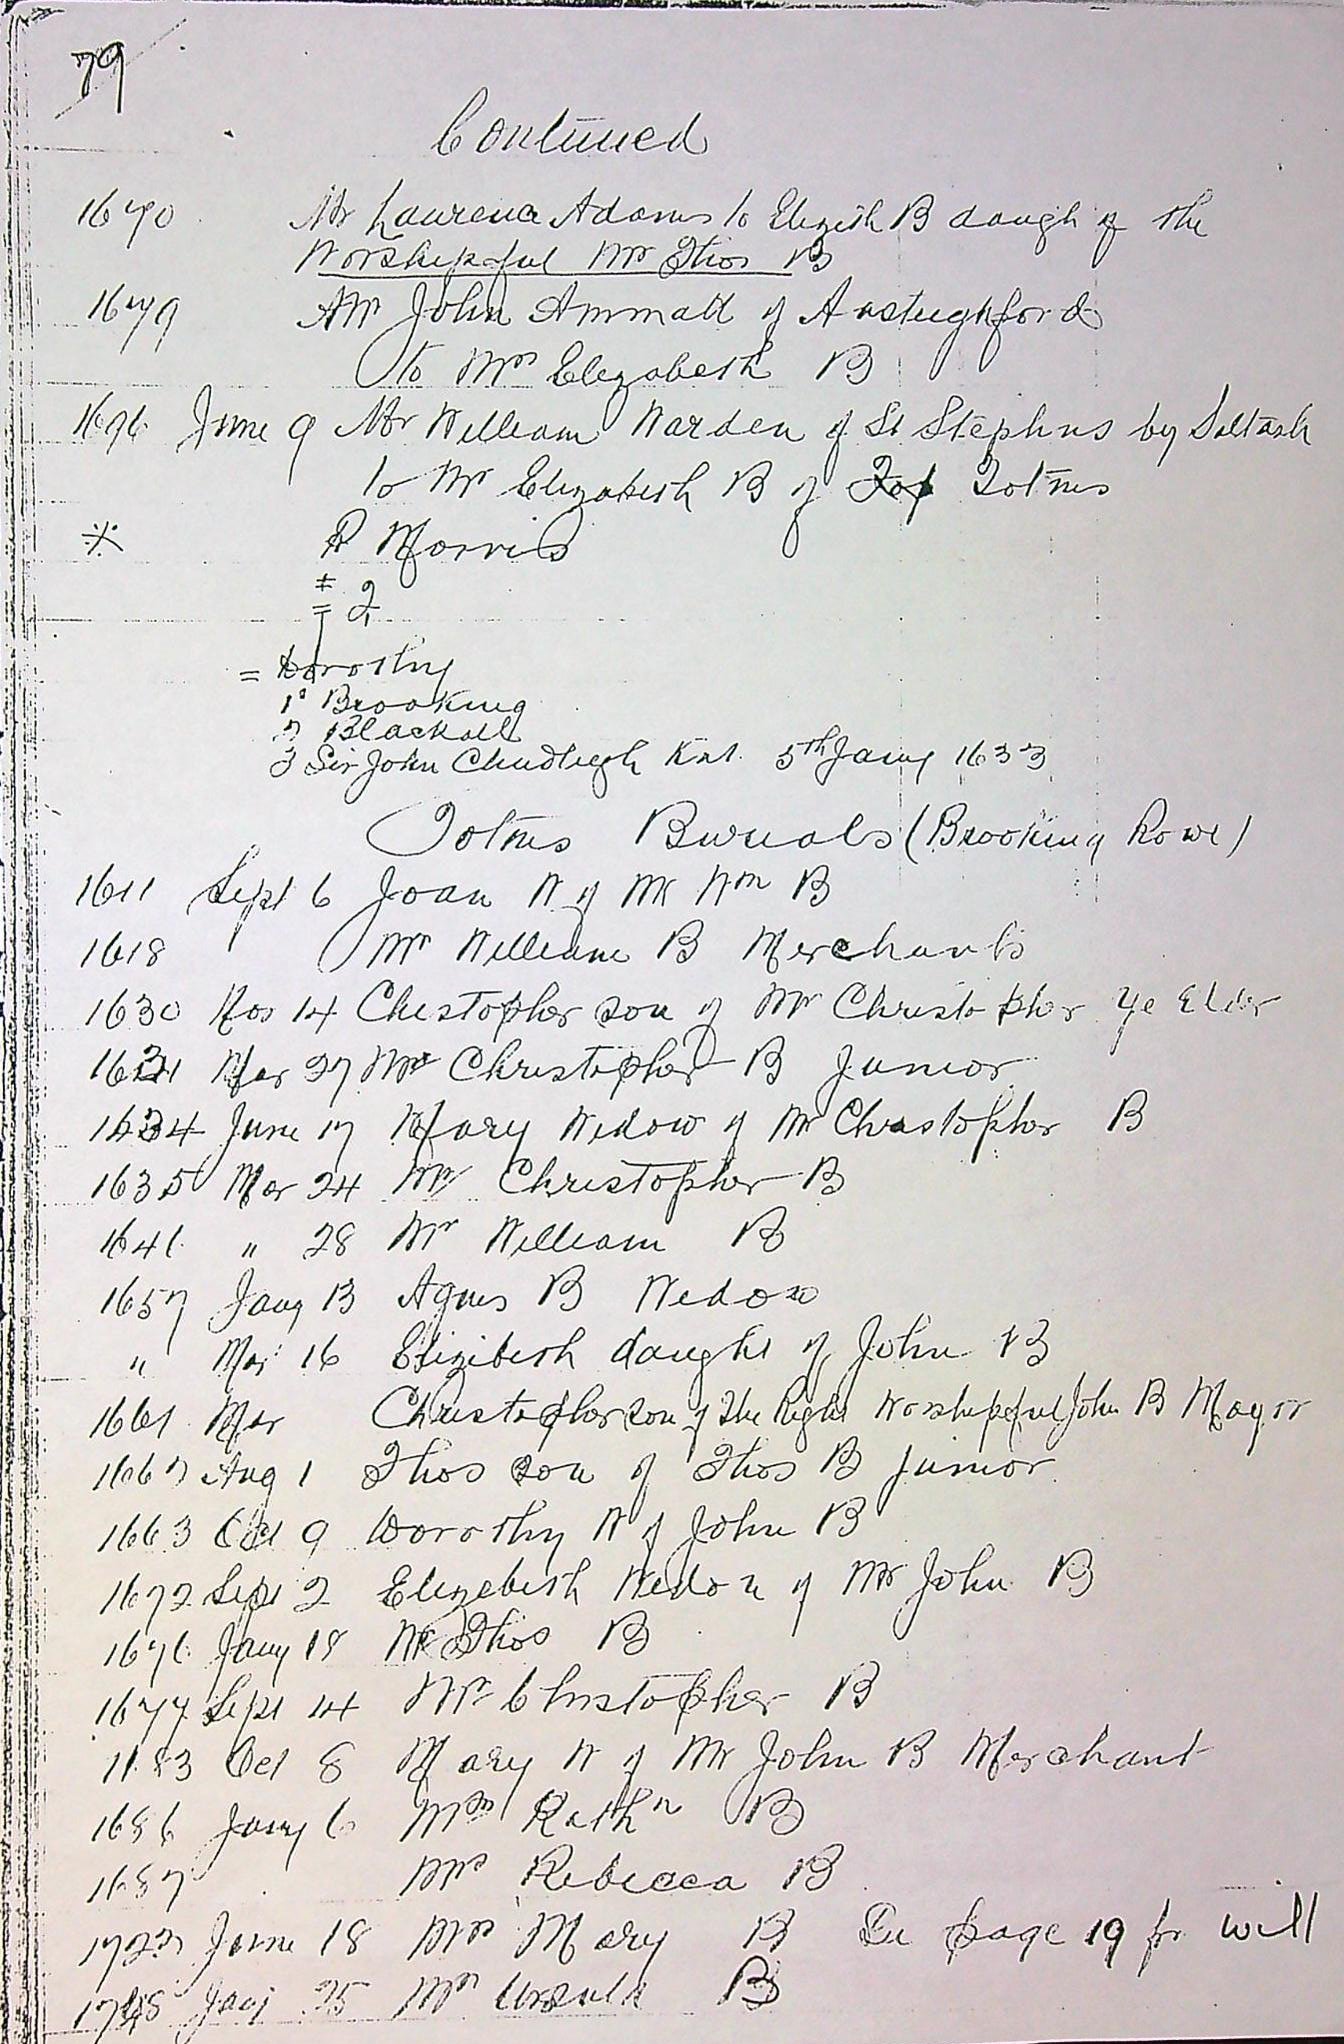 79
Continued
1670 Mr Laurence Adams to Elizth B daugh of the
Worshipful Mr Thos B
1679 Mr John Ammatt of
to Mrs Elizabeth B
1696 June 9 Mr William Warden of St Stephns by Saltash
to Mr Elizabeth B of Totnes
R Morris
= 2
= Dorothy
1 Brooking
2 Blackall
3 Sir John Chudleigh Knt. 5th Jany 1633
Totnes Burials (Brooking Rowe)
1611 Sept 6 Joan W of Mr Wm B
1618 Mr William B Merchants
1630 Nov 14 Christopher son of Mr Christopher ye Elder
Mar 27 Mr Christopher B Junior
1634 June 17 Mary Widow of Mr Christopher B
1635 Mar 24 Mr Christopher B
1641 " 28 Mr William B
1657 Jany 13 Agnes B Widow
" Mar 16 Elizibeth daught of John B
1661 Mar Christopher son of The Right Worshipful John B Mayor
1667 Aug 1 Thos son of Thos B junior
1663 Oct 9 Dorothy W of John B
1672 Sept 2 Elizebeth Widow of Mr John B
1676 Jany 18 Mr Thos B
1677 Sept 14 Mr Christopher B
1683 Oct 8 Mary W of Mr John B Merchant
1686 Jany 6 Mrs Kathn B
1687 Mrs Rebecca B
1723 June 18 Mrs Mary B See page 19 for will
Jany 25 Mrs Ursula B